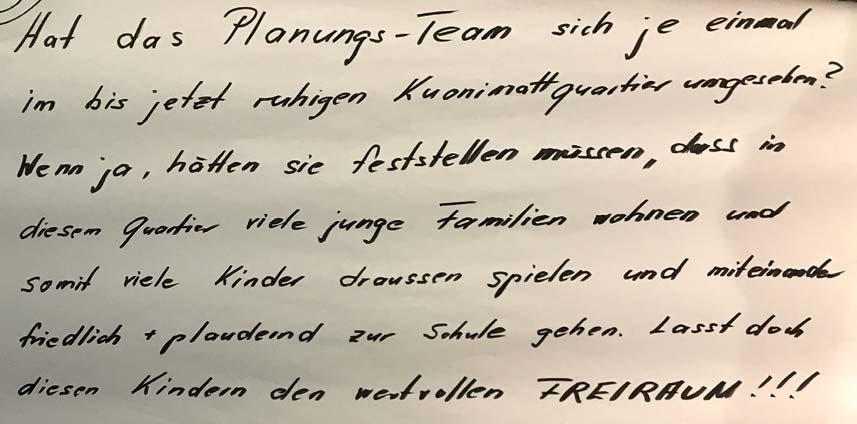 Hat das Planungs-Team sich je einmal
im bis jetzt ruhigen Kuonimattquartier umgesehen?
Wenn ja, hätten sie feststellen müssen, dass in
diesem Quartier viele junge Familien wohnen und
somit viele Kinder draussen spielen und miteinander
friedlich + plaudernd zur Schule gehen. Lasst doch
diesen Kindern den wertvollen FREIRAUM!!!